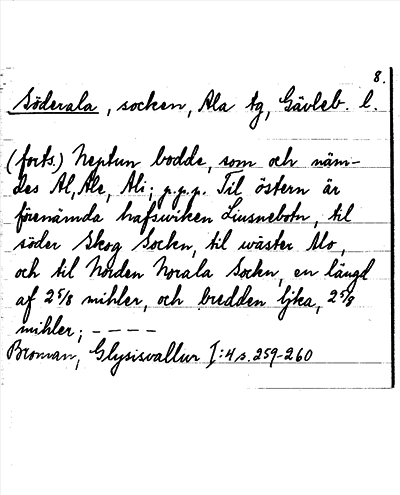 8.
Söderala, socken, Ala tg, Gävleb. l.
(forts.) Neptun bodde, som och näm-
des Al, Ale, Ali; p.p.p. Til östern är
förenämda hafswiken Liusnebotn, til
söder Skog Sockn, til wäster Mo,
och til Norden Norala Sockn, en längd
af 2 5/8 mihler, och bredden lika, 2 5/8
mihler; - - - -
Broman, Glysisvallur I:4 s. 259-260